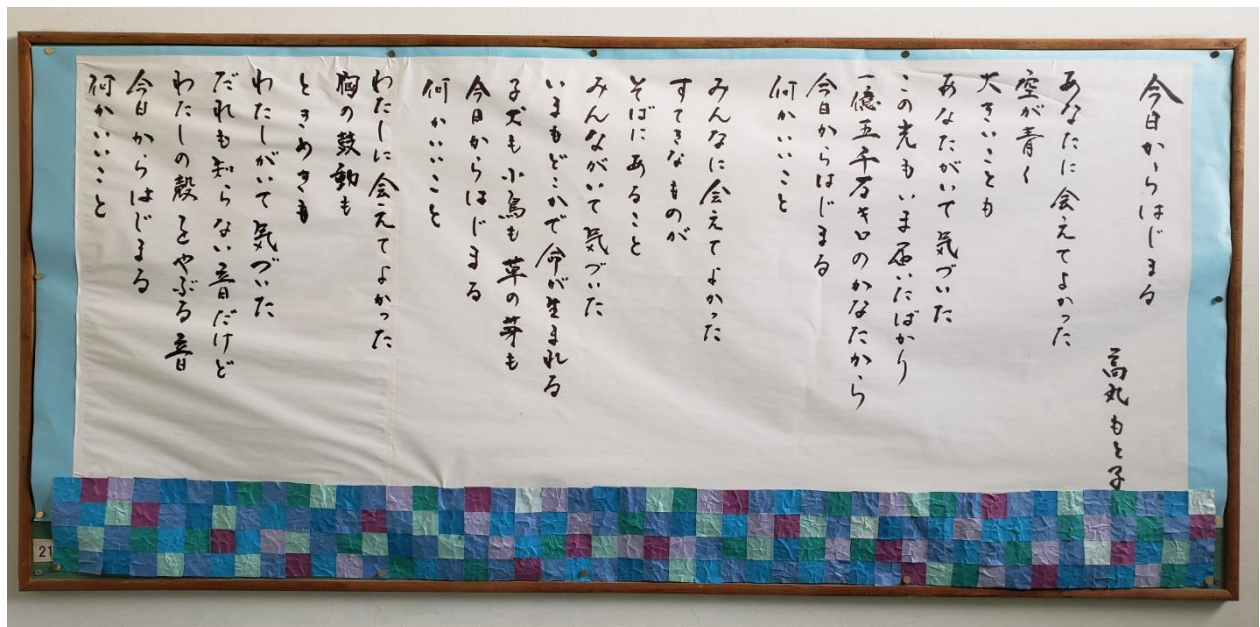 今日からはじまる
高丸もと子
あなたに会えてよかった
空が青く
大きいことも
あなたがいて気づいた
この光もいま届いたばかり
一億五千万キロのかなたから
今日からはじまる
何かいいこと
みんなに会えてよかった
すてきなものが
そばにあること
みんながいて気づいた
いまもどこかで命が生まれる
子犬も小鳥も草の芽も
今日からはじまる
何かいいこと
わたしに会えてよかった
胸の鼓動も
ときめきも
わたしがいて気づいた
だれも知らない音だけど
わたしの殻をやぶる音
今日からはじまる
何かいいこと
21